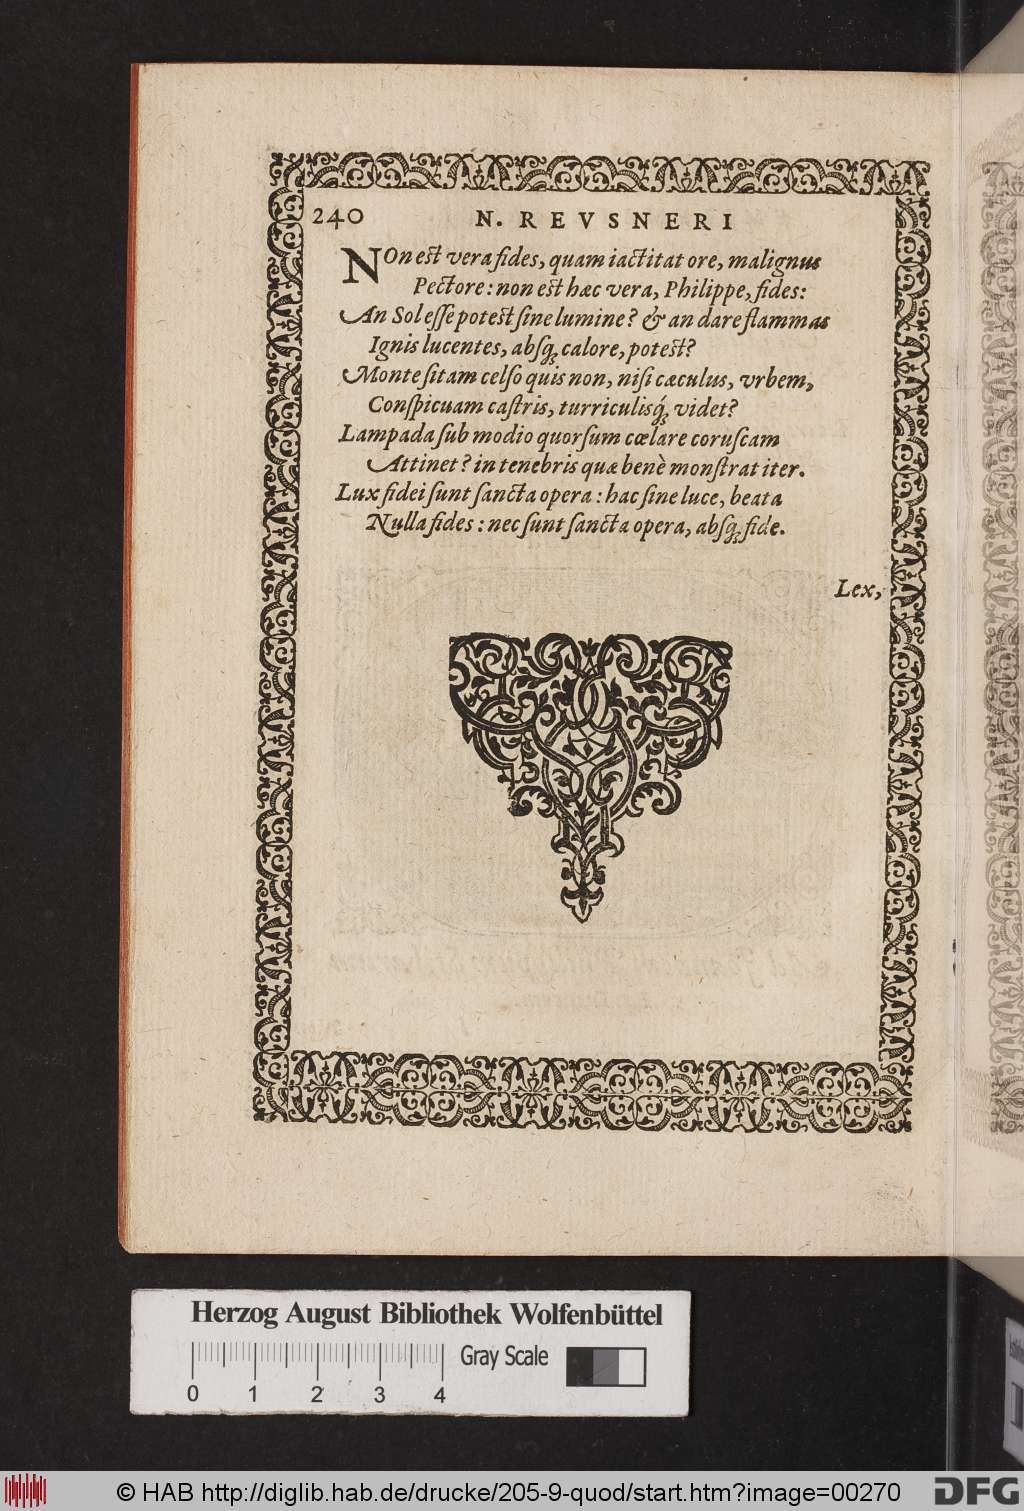 240 N. REVSNERI
NOn est vera fides, quam iactitat ore, malignus
Pectore: non est hæc vera, Philippe, fides:
An Sol esse potest sine lumine? & an dare flammas
Ignis lucentes, absq; calore, potest?
Monte sitam celso quis non, nisi cæculus, vrbem,
Conspicuam castris, turriculisq́;, videt?
Lampada sub modio quorsum cœlare coruscam
Attinet? in tenebris quæ benè monstrat iter.
Lux fidei sunt sancta opera: hac sine luce, beata
Nulla fides: nec sunt sancta opera, absq; fide.
Lex,
Herzog August Bibliothek Wolfenbüttel
Gray Scale
0 1 2 3 4
© HAB http://diglib.hab.de/drucke/205-9-quod/start.htm?image=00270
DFG